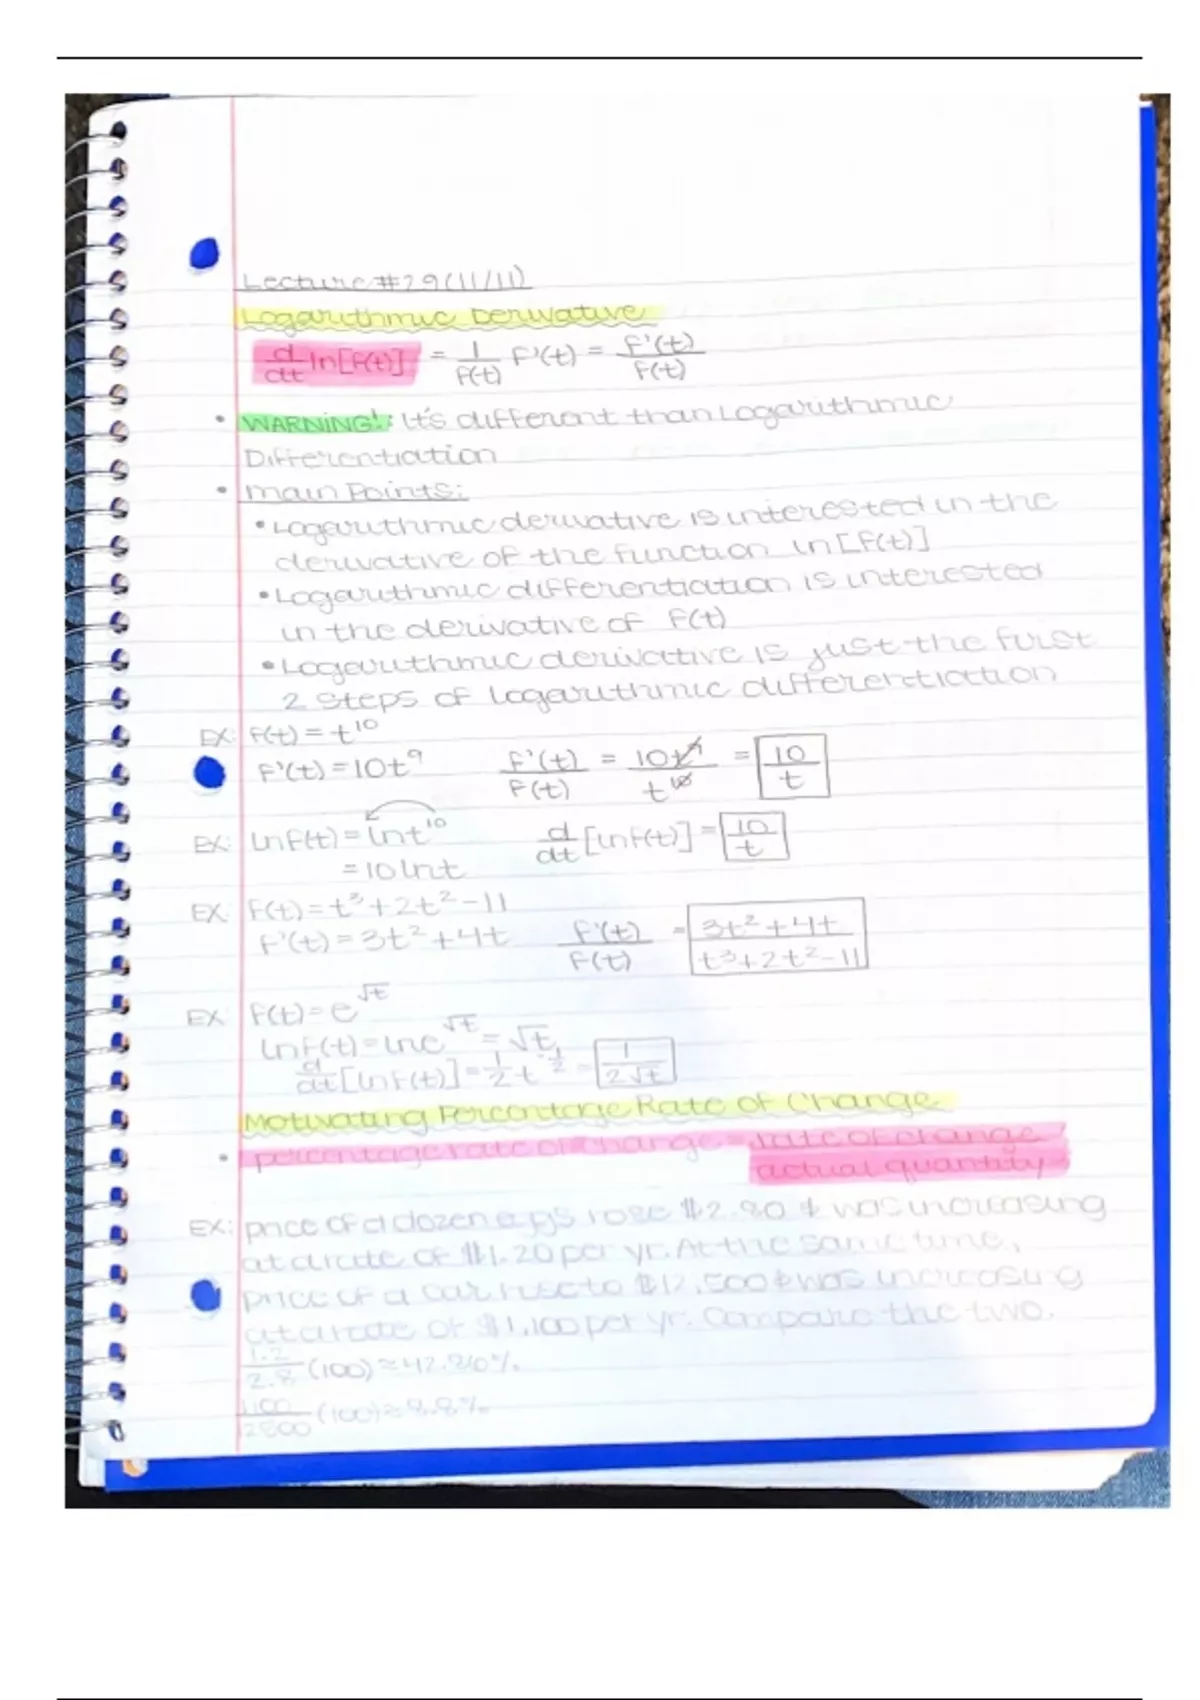 Lecture #29 (11/11)
Logarithmic Derivative
d/dt ln[f(t)] = 1/f(t) f'(t) = f'(t)/f(t)
• WARNING!: It's different than Logarithmic
Differentiation
• Main Points:
• Logarithmic derivative is interested in the
derivative of the function ln[f(t)]
• Logarithmic differentiation is interested
in the derivative of f(t)
• Logarithmic derivative is just the first
2 steps of logarithmic differentiation
EX: f(t) = t^10
f'(t) = 10t^9 f'(t)/f(t) = 10t^9/t^10 = 10/t
EX: ln f(t) = ln t^10 d/dt [ln f(t)] = 10/t
= 10 ln t
EX: f(t) = t^3 + 2t^2 - 11
f'(t) = 3t^2 + 4t f'(t)/f(t) = 3t^2 + 4t/t^3 + 2t^2 - 11
EX: f(t) = e^√t
ln f(t) = ln e^√t = √t
d/dt [ln f(t)] = 1/2 t^-1/2 = 1/2√t
Motivating Percentage Rate of Change
• percentage rate of change = rate of change/actual quantity
EX: price of a dozen eggs rose $2.80 & was increasing
at a rate of $1.20 per yr. At the same time,
price of a car rose to $12,500 & was increasing
at a rate of $1,100 per yr. Compare the two.
1.2/2.8 (100) ≈ 42.%
1100/12500 (100) ≈ 8.8%